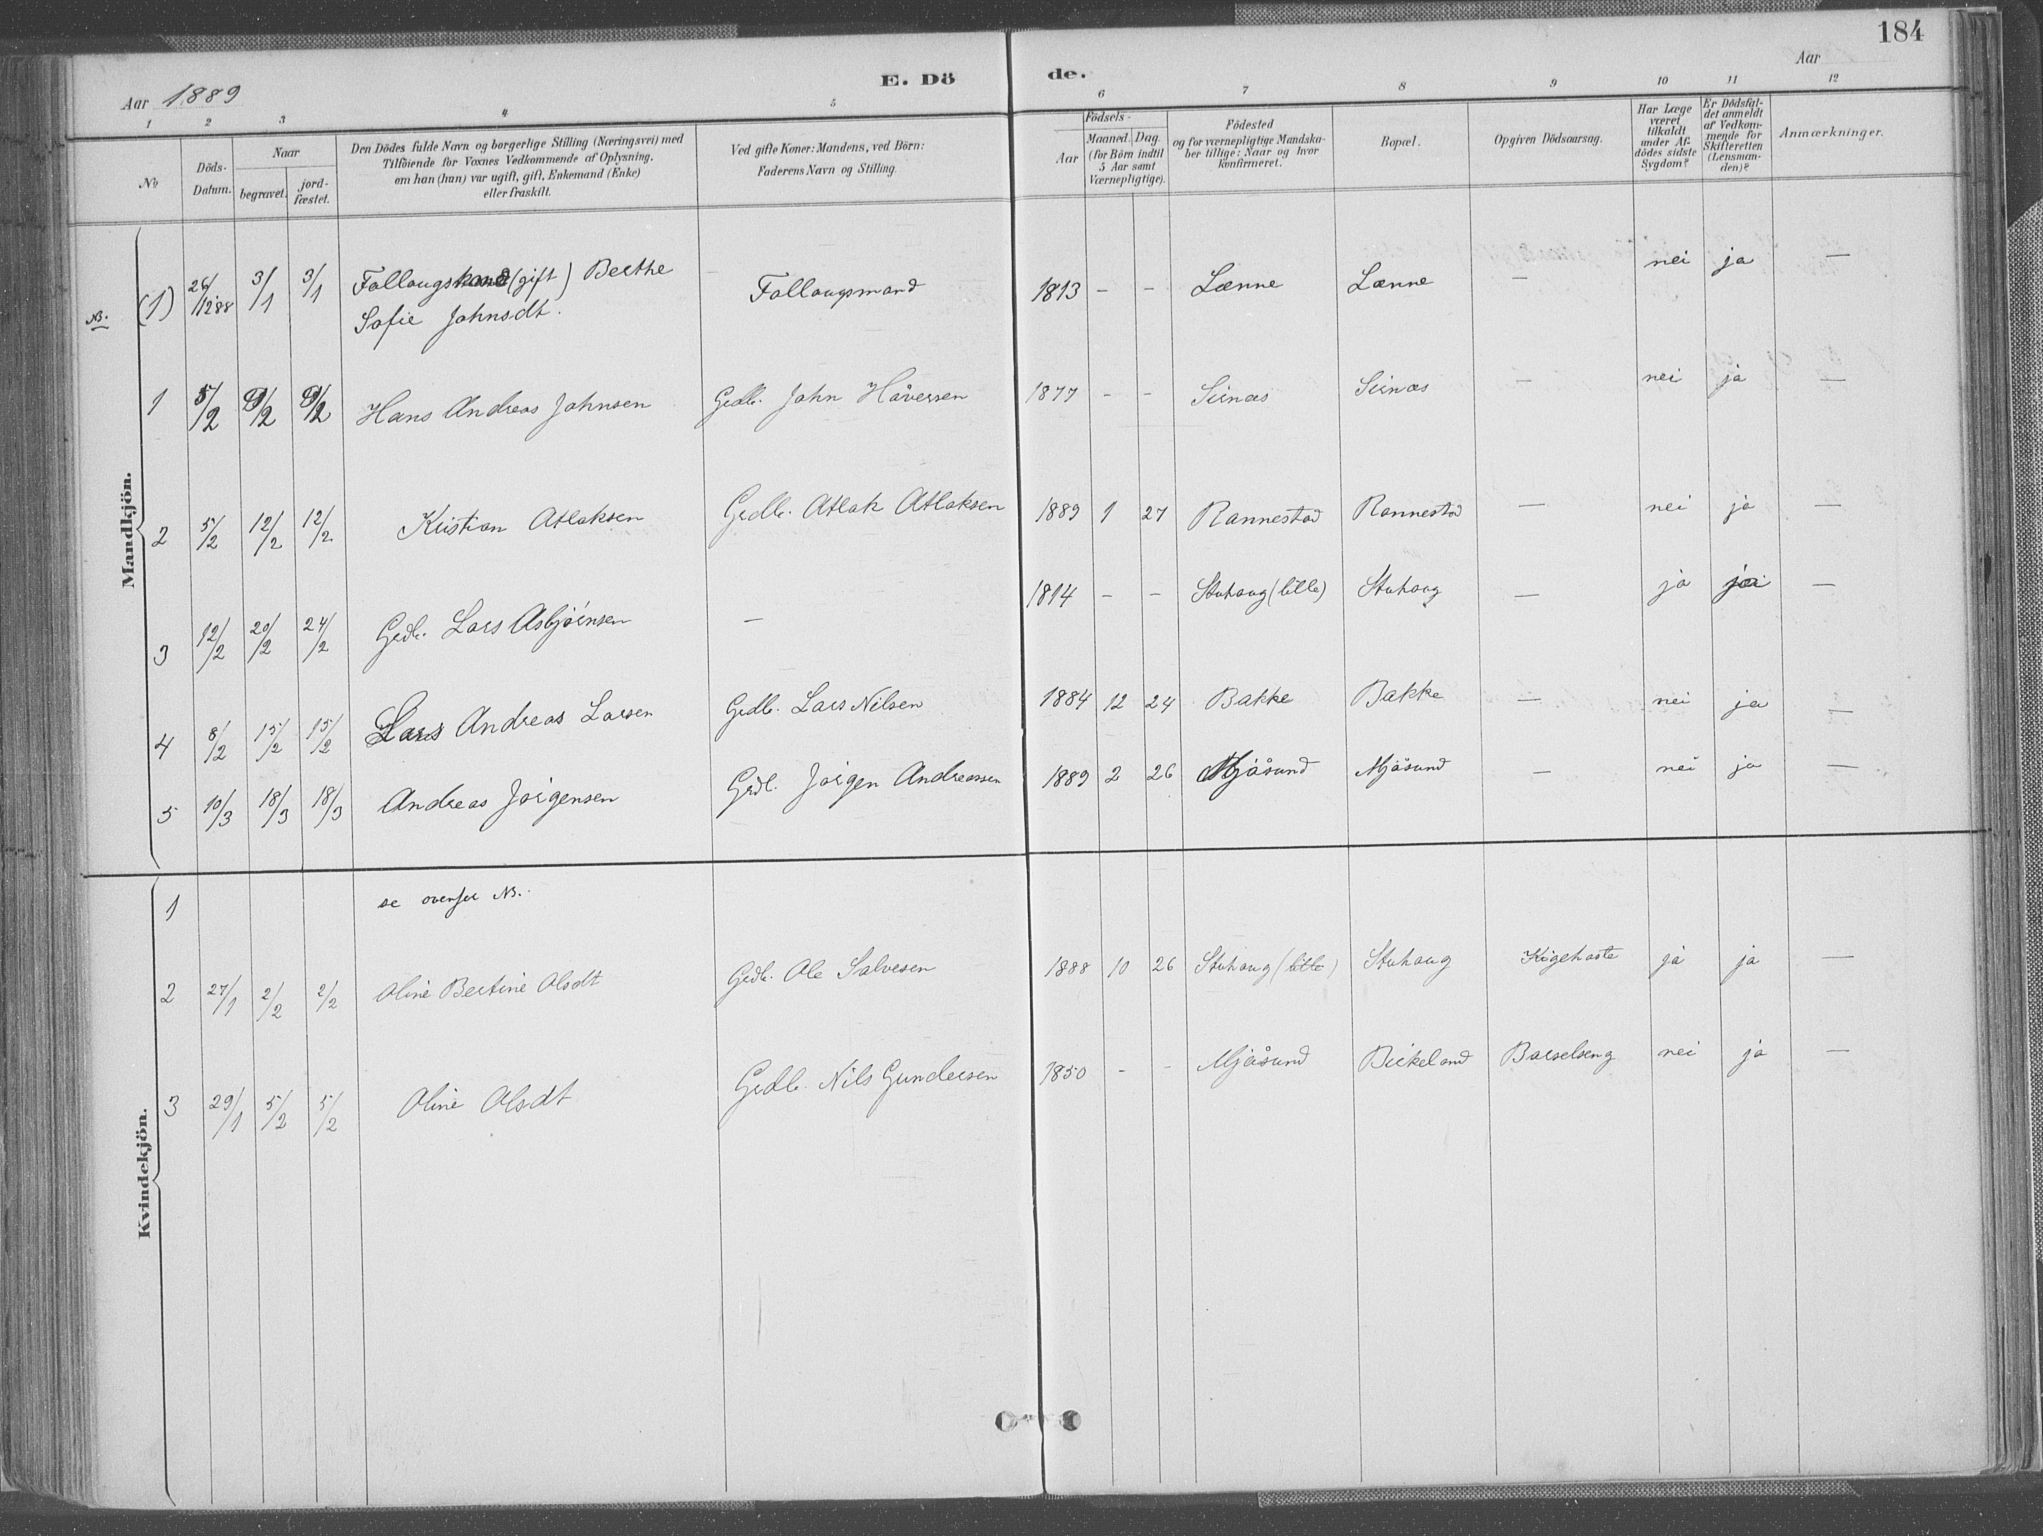 184
Aar 1889
E. Dö
de.
Aar
1 2 3 4 5 6 7 8 9 10 11 12
No
Döds-Datum.
Naar
begravet.
jord-fæstet.
Den Dödes fulde Navn og borgerlige Stilling (Næringsvei) med
Tilföiende for Voxnes Vedkommende af Oplysning,
om han (hun) var ugift, gift, Enkemand (Enke)
eller fraskilt.
Ved gifte Koner: Mandens, ved Börn:
Faderens Navn og Stilling.
Födsels-
Aar
Maaned. Dag.
(for Börn indtil
5 Aar samt
Værnepligtige).
Födested
og for værnepligtige Mandska-
ber tillige: Naar og hvor
konfirmeret.
Bopæl.
Opgiven Dödsaarsag.
Har Læge
været
tilkaldt
under Af-
dödes sidste
Sygdom?
Er Dödsfal-
det anmeldt
af Vedkom-
mende for
Skifteretten
(Lensman-
den)?
Anmærkninger.
Mandkjön.
NB. (1) 26/12 88 3/1 3/1 Follaugskone (gift) Berthe Follaugsmand 1813 - - Lænne Lænne — nei ja —
Sofie Johnsdt.
1 5/2 9/2 9/2 Hans Andreas Johnsen Gedb. John Håversen 1877 - - Sirnæs Sirnæs — nei ja —
2 5/2 12/2 12/2 Kristian Atlaksen Grdb. Atlak Atlaksen 1889 1 27 Rannestad Rannestad — nei ja —
3 12/2 20/2 24/2 Grdb. Lars Asbjörnsen — 1814 - - Stuhaug (lille) Stuhaug — ja ja —
4 8/2 15/2 15/2 Lars Andreas Larsen Grdb. Lars Nilsen 1884 12 24 Bakke Bakke — nei ja —
5 10/3 18/3 18/3 Andreas Jörgensen Grdb. Jörgen Andreassen 1889 2 26 Mjåsund Mjåsund — nei ja —
Kvindekjön.
1 se ovenfor NB.
2 27/1 2/2 2/2 Oline Bertine Olsdt Grdb. Ole Salvesen 1888 10 26 Stuhaug (lille) Stuhaug Kigehoste ja ja —
3 29/1 5/2 5/2 Oline Olsdt Grdb. Nils Gundersen 1850 - - Mjåsund Birkeland Barselseng nei ja —